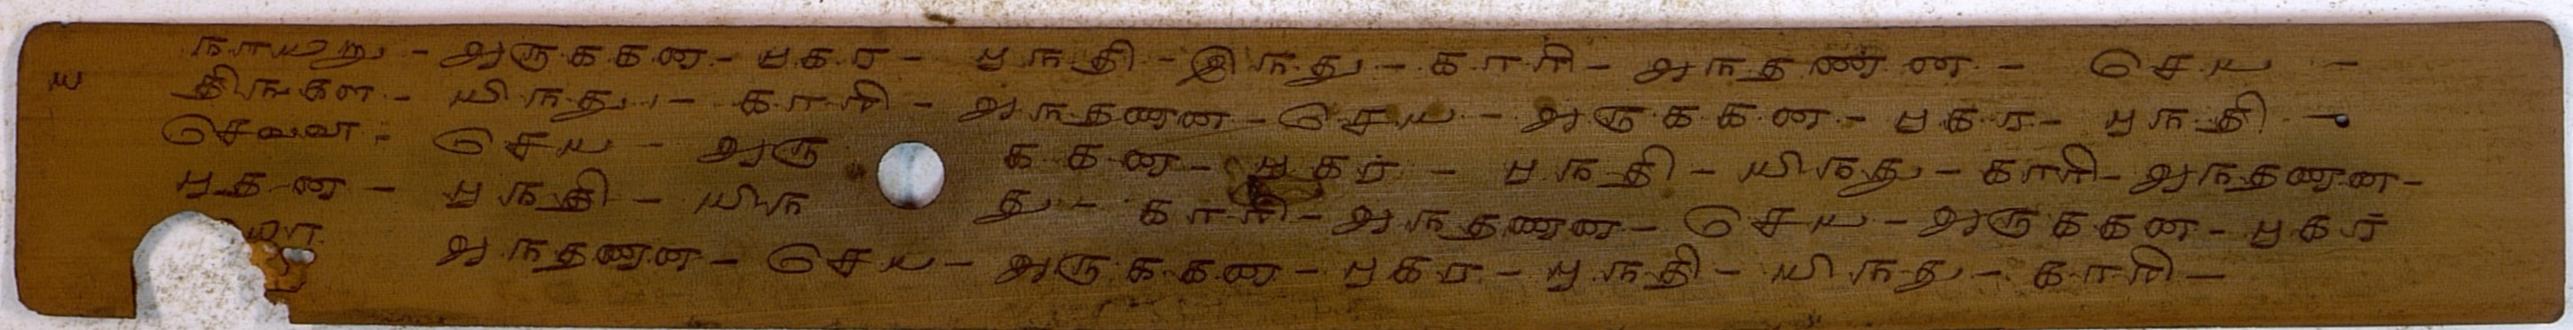 நாயறு - அருககன - புகர - புநதி - இநது - காரி - அநதணன - செய -
ய திஙகள - யிநது - காரி - அநதணன - செய - அருககன - புகர - புநதி -
செவவா - செய - அருககன - புகர் - புநதி - யிநது - காரி - அநதணன -
புதன - புநதி - யிநது - காரி - அநதணன - செய - அருககன - புகர்
அநதணன - செய - அருககன - புகர - புநதி - யிநது - காரி -